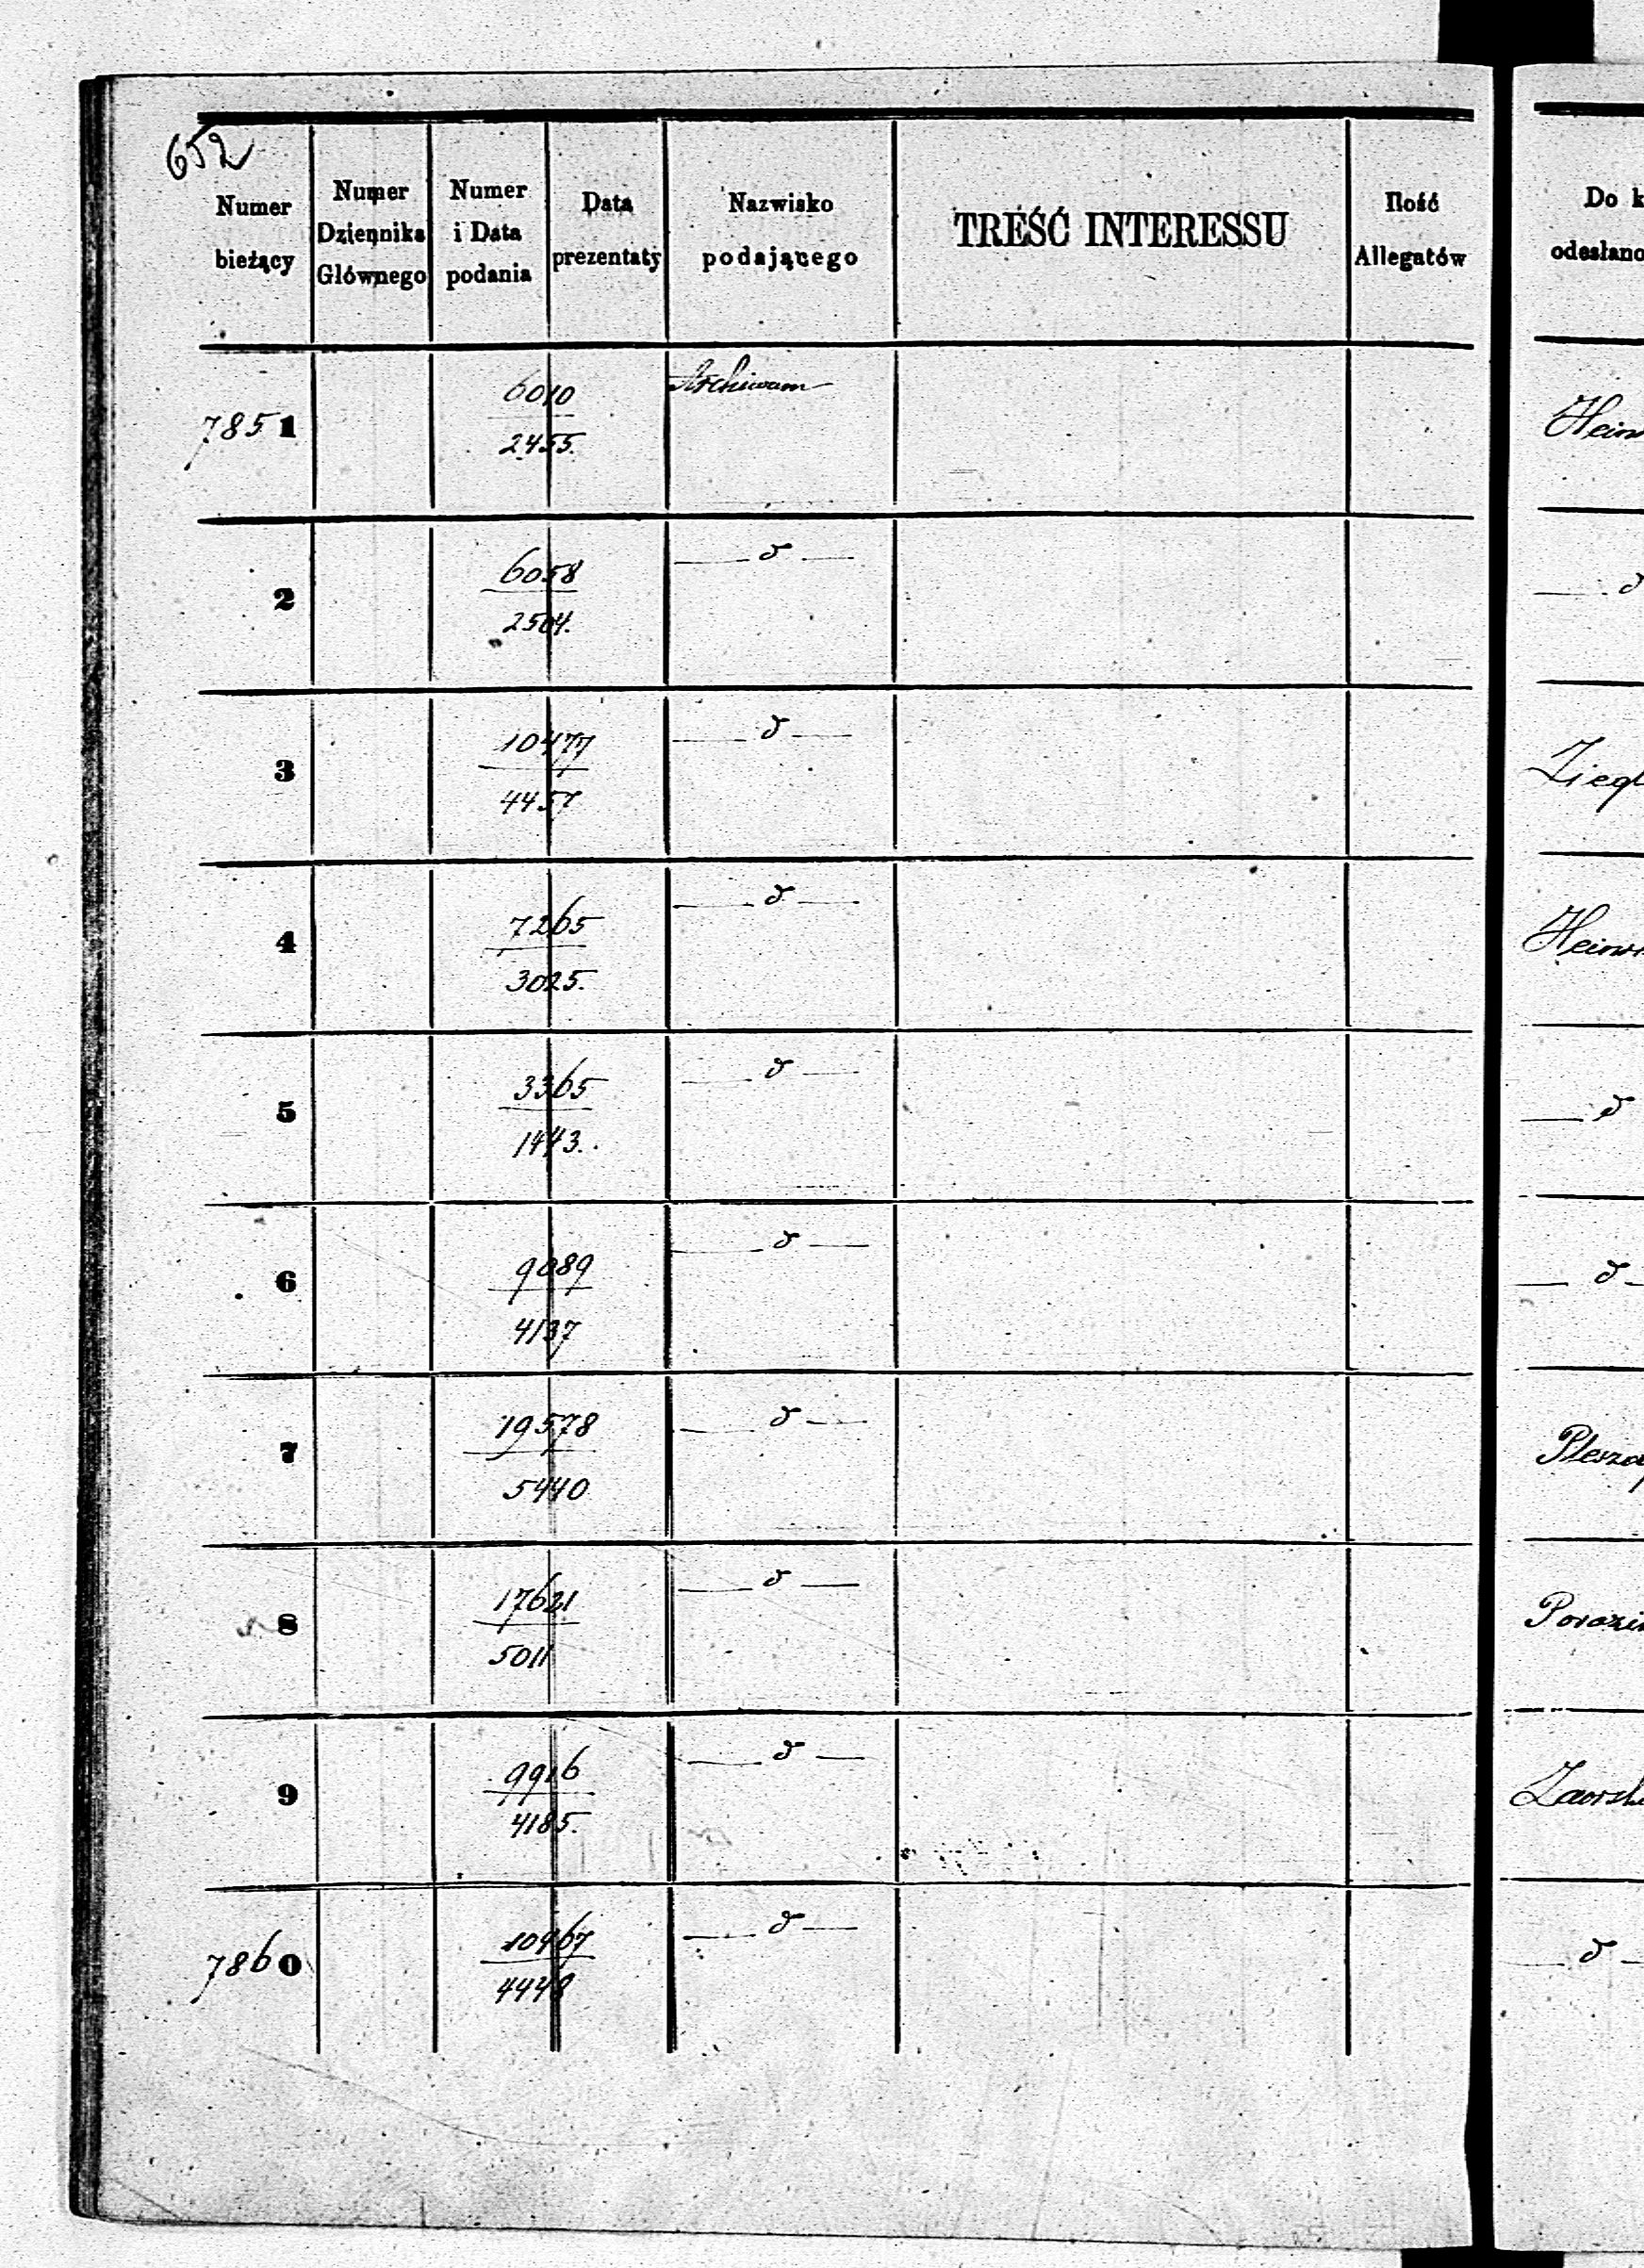 652
Numer bieżący
Numer Dziennika Głównego
Numer i Data podania
Data prezentaty
Nazwisko podającego
TREŚĆ INTERESSU
Ilość Allegatów
Do k
odesłano
7851 6010 Archiwum
2455.
2 6058 — d —
2504. — d
3 10477 — d —
4457 Ziegl
4 7265 — d —
3025.
5 3365 — d —
1443. — d
6 9089 — d — — d —
4137
7 19578 — d —
5440
8 17621 — d —
5011
9 9916 — d —
4185.
7860 10467 — d — — d —
4448